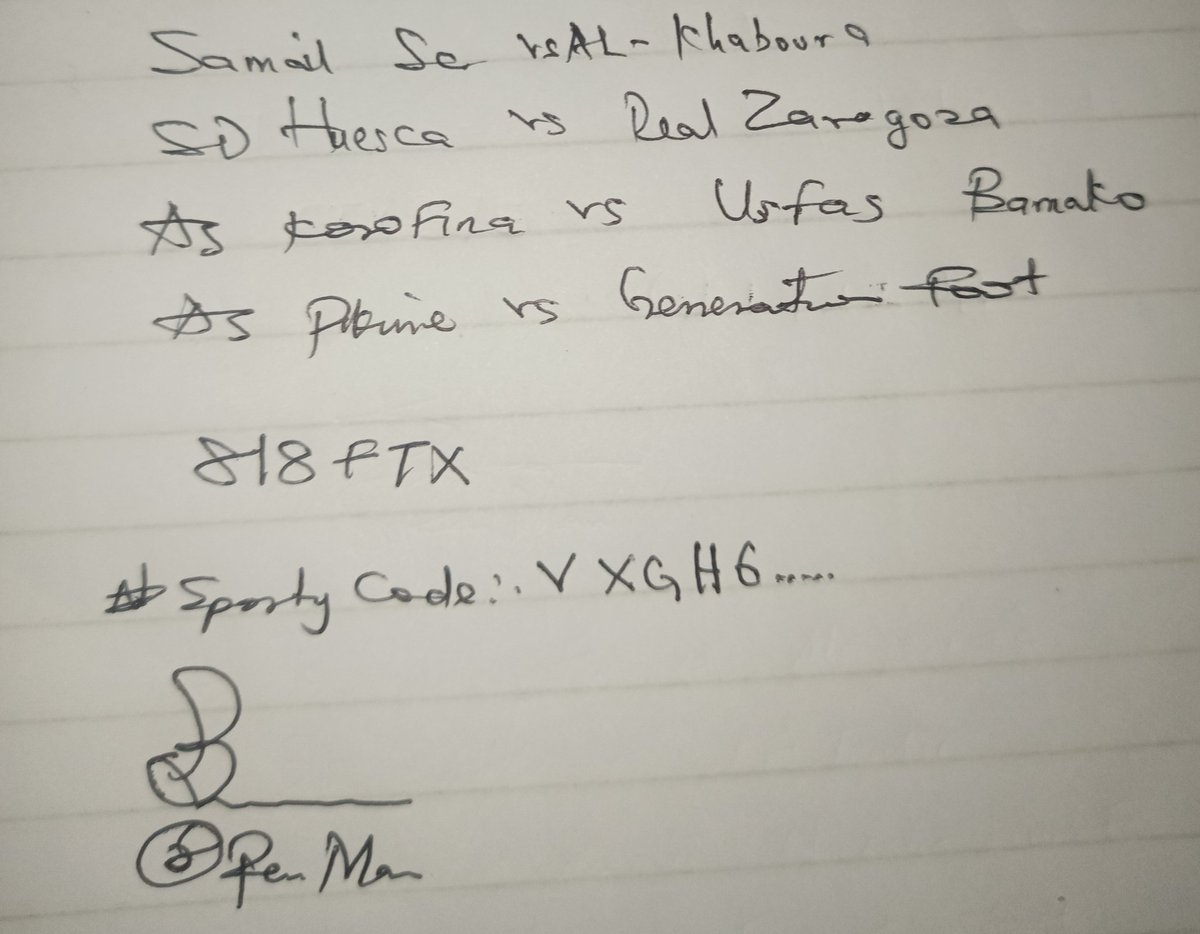 Samail Sc vs AL-Khaboura
SD Huesca vs Real Zaragoza
As Korofina vs Usfas Bamako
As Pikine vs Generation foot
818 FTX
# Sporty Code:. VXGH6.....
@ Pen Man